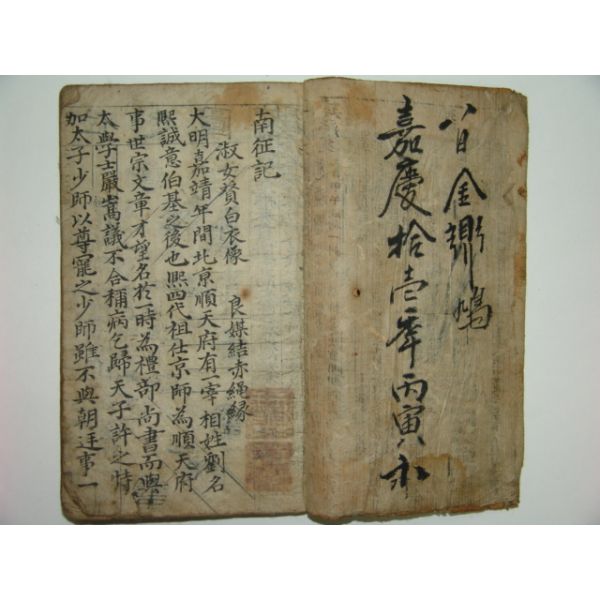 嘉慶拾壹年丙寅八
南征記
淑女賛白衣像 良媒結赤绳縁
大明嘉靖年間北京順天府有一宰相姓劉名
熙誠意伯基之後也熙四代祖仕京師為順天府
事世宗文章才望名於一時為禮部尚書而與
太學士嚴嵩議不合稱病乞歸天子許之特
加太子少師以尊寵之少師雖不與朝廷事一